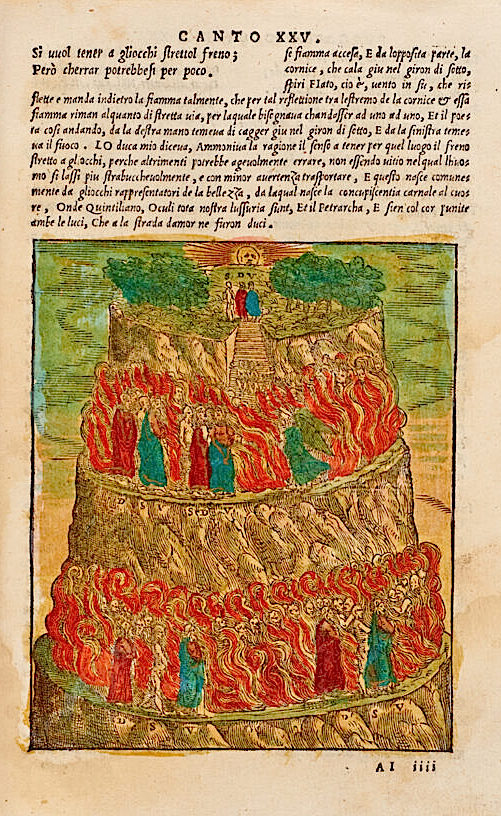 CANTO XXV.
Si vuol tener a gliocchi strettol freno;
Però cherrar potrebbesi per poco.
se fiamma accesa, E da lopposita parte, la
cornice, che cala giu nel giron di sotto,
spiri Flato, ciò è, vento in su, che ri-
flette e manda indietro la fiamma talmente, che per tal reflettione tra lestremo de la cornice & essa
fiamma riman alquanto di stretta via, per laquale bisognava chandasser ad uno ad uno, Et il poe-
ta cosi andando, da la destra mano temeva di cagger giu nel giron di sotto, E da la sinistra teme-
va il fuoco. LO duca mio diceva, Ammoniva la ragione il senso a tener per quel luogo il freno
stretto a gliocchi, perche altrimenti potrebbe agevolmente errare, non essendo vitio nelqual lhuo-
mo si lassi piu strabucchevolmente, e con minor avertenza trasportare, E questo nasce comune-
mente da gliocchi rappresentatori de la bellezza, da laqual nasce la concupiscentia carnale al cuo-
re, Onde Quintiliano, Oculi tota nostra luxuria sunt, Et il Petrarcha, E sien col cor punite
ambe le luci, Che a la strada damor ne furon duci.
S D V
D S V S D V
D S V D S V
AI iiii